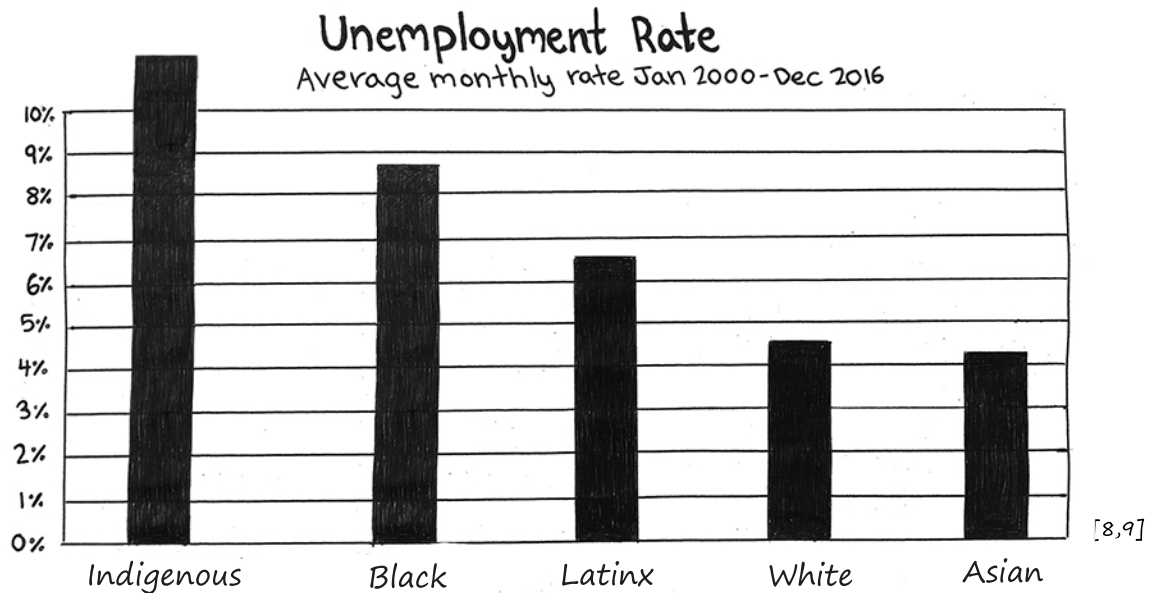 Unemployment Rate
Average monthly rate Jan 2000-Dec 2016
10%
9%
8%
7%
6%
5%
4%
3%
2%
1%
0%
[8,9]
Indigenous Black Latinx White Asian